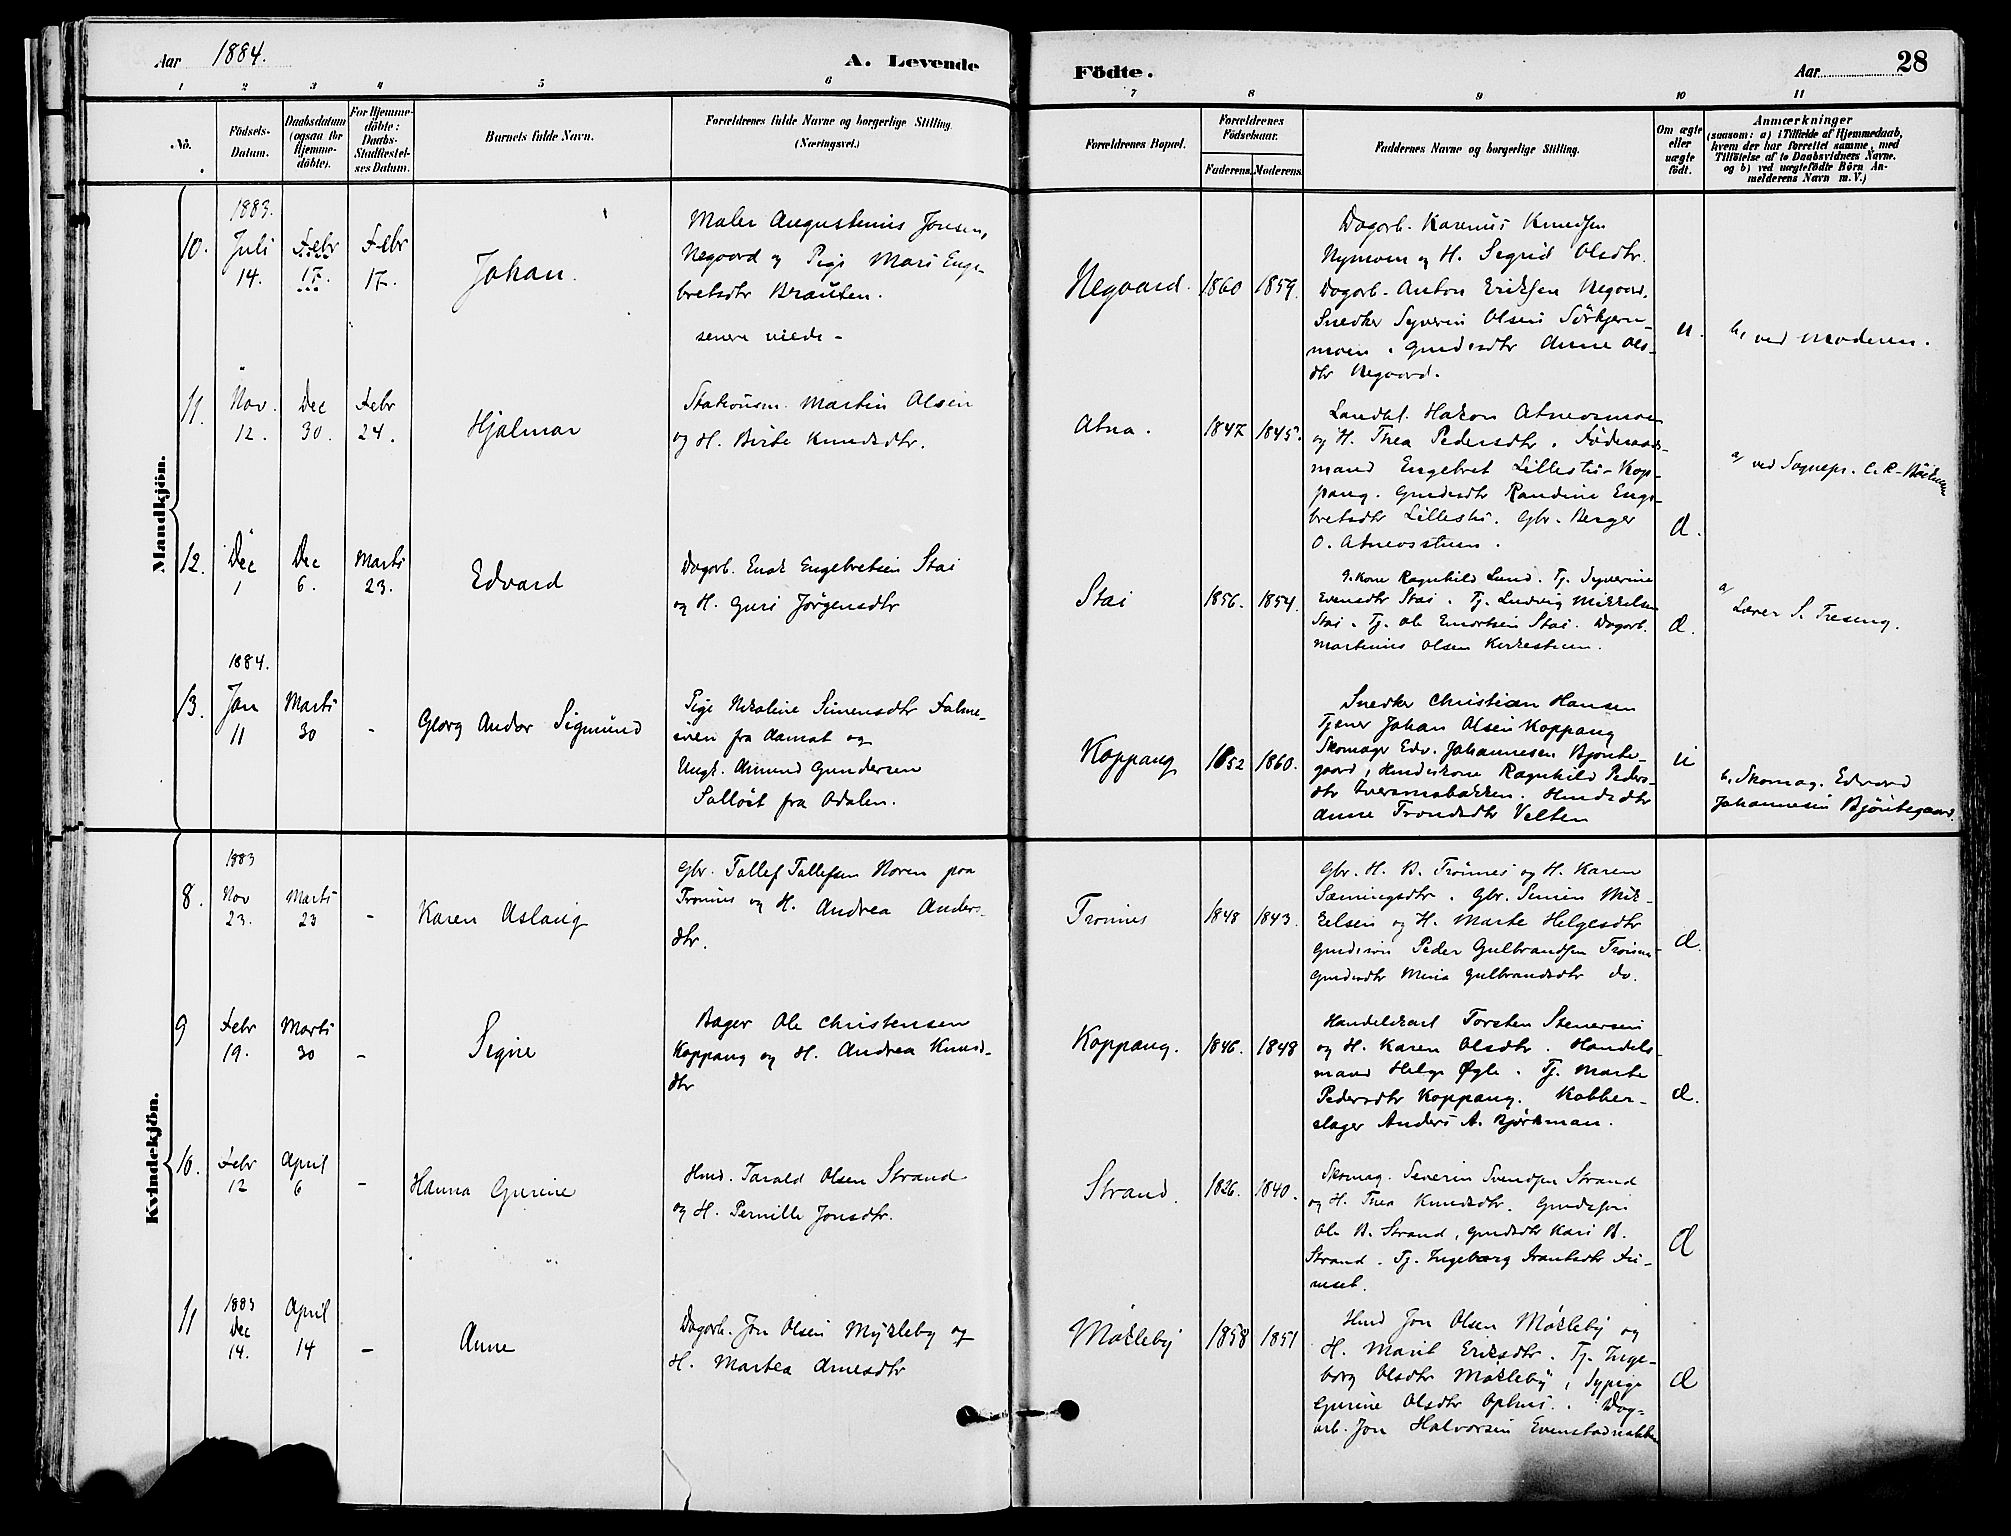 Aar 1884.
A. Levende
Födte.
Aar
28
1 2 3 4 5 6 7 8 9 10 11
No.
Födsels-
Datum.
Daabsdatum
(ogsaa for
Hjemme-
döbte).
For Hjemme-
döbte:
Daabs-
Stadfæstel-
ses Datum.
Barnets fulde Navn.
Forældrenes fulde Navne og borgerlige Stilling.
(Næringsvei.)
Forældrenes Bopæl.
Forældrenes
Födselsaar.
Faderens. Moderens.
Faddernes Navne og borgerlige Stilling.
Om ægte
eller
uægte
födt.
Anmærkninger
(saasom: a) i Tilfælde af Hjemmedaab,
hvem der har forrettet samme, med
Tilföielse af to Daabsvidners Navne.
og b) ved uægtefödte Börn An-
melderens Navn m. V.)
Mandkjön.
10.
1883.
Juli
14.
Febr
17.
Febr
17.
Johan.
Maler Augustinus Jonsen,
Negaard og Pige Mari Enge-
bretsdtr Brauten.
senere viede -
Negaard.
1860
1859.
Dagarb. Karenus Knudsen
Nymoen og H. Sigrid Olsdtr.
Dagarb. Anton Eriksen Negaard.
Snedker Syverin Olsen
moen. Gmdsdtr Anne Ols-
dtr Negaard.
u.
b, ved moderen.
11.
Nov.
12.
Dec
30.
Febr
24.
Hjalmar
Stationsm. Martin Olsen
og H. Birte Knudsdtr.
Atna.
1847
1845.
Landh. Hakon Atneosmoen
og H. Thea Pedersdtr. Föderaads-
mand Engebret Lillestu- Kop-
pang. Gmdsdtr Randine Enge-
bretsdtr Lillestu. Gbr. Berger
O. Atneosstuen.
d.
a, ved Sognepr. C. R.
12.
Dec
1
Dec
6.
Marts
23.
Edvard
Dagarb. Enok Engebretsen Stai
og H. Guri Jørgensdtr
Stai
1856.
1854.
G.kone Ragnhild Lund. Tj. Syverine
Evensdtr Stai. Tj. Ludvig Mikkelsen
Stai. Tj. Ole Stai. Dagarb.
Martinus Olsen Kirkestuen.
d.
a, Lærer S. Treseng.
13.
1884.
Jan
11
Marts
30
-
Georg Andor Sigmund
Pige Nikoline Simensdtr
fra Aamot og
Ungk. Amund Gundersen
fra Odalen.
Koppang
1852
1860.
Snedker Christian Hansen
Tjener Johan Olsen Koppang
Skomager Edv. Johannesen Bjønte-
gaard, Huuskone Ragnhild Peders-
dtr Husmdsdtr
Anne Trondsdtr Velten
u
b, Skomag. Edvard
Johannesen Bjöntegaard.
Kvindekjön.
8.
1883
Nov
23.
Marts
23
-
Karen Aslaug
Gbr. Tollef Tollefsen Noren paa
Trønnes og H. Andrea Anders-
dtr.
Trønnes
1848
1843.
Gbr. H. B. Trønnes og H. Karen
Sæmingsdtr. Gbr. Simen Mik-
kelsen og H. Marte Helgesdtr
Gmdssøn Peder Gulbrandsen Trønnes-
Gmdsdtr Mina Gulbrandsdtr do.
d.
9
Febr
19.
Marts
30
-
Signe
Bager Ole Christensen
Koppang og H. Andrea Knuds-
dtr
Koppang.
1846.
1848
Handelskarl Torsten Stenersen
og H. Karen Olsdtr. Handels-
mand Helge Øgle. Tj. Marte
Pedersdtr Koppang. Kobber-
slager Anders A. Björkman.
d.
10.
Febr
12
April
6
-
Hanna Gurine
Hmd. Tarald Olsen Strand
og H. Pernille Jonsdtr.
Strand.
1826.
1840.
Skomag. Severin Svendsen Strand
og H. Thea Knudsdtr. Gmdssøn
Ole B. Strand, Gmdsdtr Kari B.
Strand. Tj. Ingeborg Frantsdtr Fu-
ruset.
d
11
1883
Dec
14.
April
14
-
Anne
Dagarb. Jon Olsen Mykleby og
H. Martea Arnesdtr
Møkleby
1858
1851
Hmd Jon Olsen Møkleby og
H. Marit Eriksdtr. Tj. Inge-
borg Olsdtr Møkleby, Sypige
Gurine Olsdtr Ophus. Dag-
arb. Jon Halvorsen Evenstadnakken
d